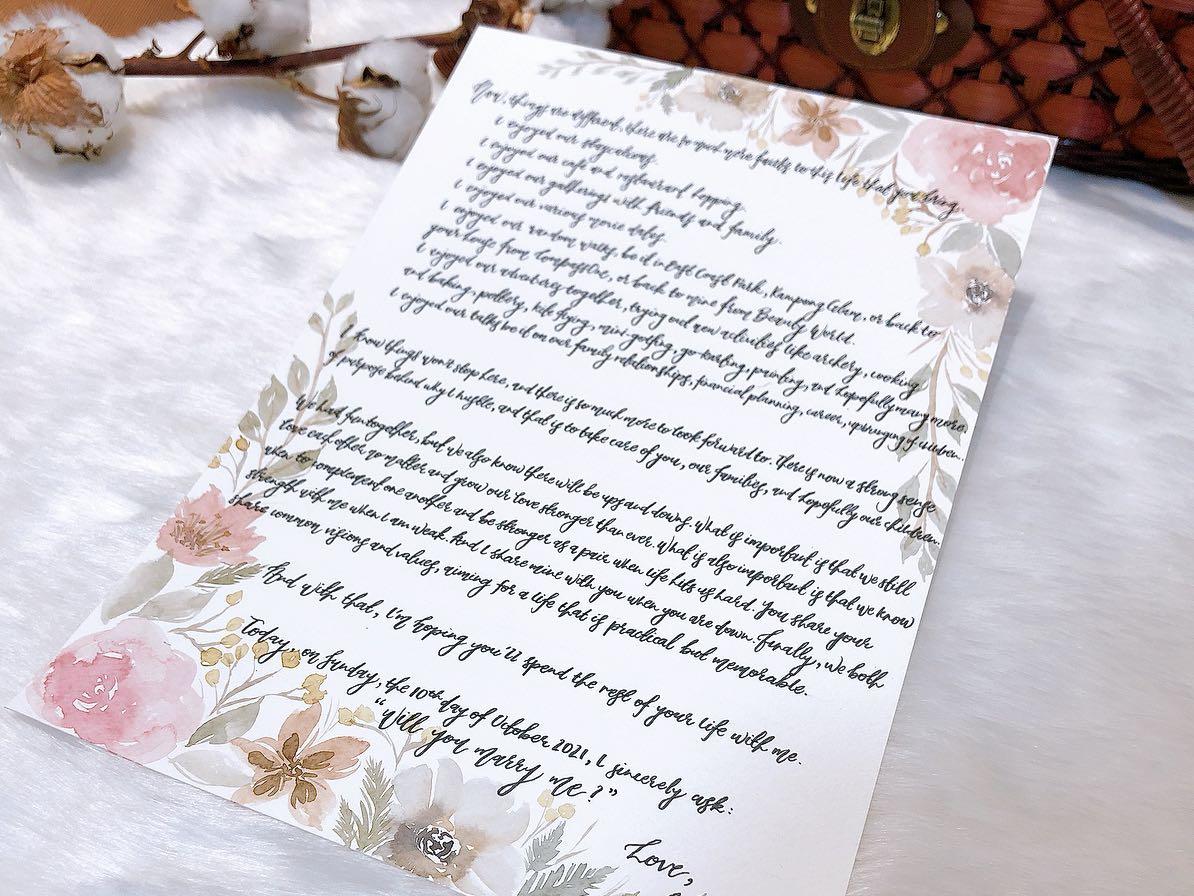 Now, things are different, there are so much more facets to this life that you bring.
I enjoyed our staycations.
I enjoyed our café and restaurant hopping.
I enjoyed our gatherings with friends and family.
I enjoyed our various movie dates.
I enjoyed our random walks, be it in East Coast Park, Kampong Glam, or back to
your house from CompassOne, or back to mine from Beauty World.
I enjoyed our adventures together, trying out new activities like archery, cooking
and baking, pottery, kite flying, mini-golfing, go-karting, painting, and hopefully many more.
I enjoyed our talks be it on our family relationships, financial planning, career, upbringing of children..
I know things won't stop here, and there is so much more to look forward to. There is now a strong sense
of purpose behind why I hustle, and that is to take care of you, our families, and hopefully our children.
We had fun together, but we also know there will be ups and downs. What is important is that we still
love each other no matter and grow our love stronger than ever. What is also important is that we know
when to complement one another and be stronger as a pair when life hits us hard. You share your
strength with me when I am weak. And I share mine with you when you are down. Finally, we both
share common visions and values, aiming for a life that is practical but memorable.
And with that, I'm hoping you'll spend the rest of your life with me.
Today, on Sunday, the 10th day of October 2021, I sincerely ask:
"Will you marry me?"
Love,